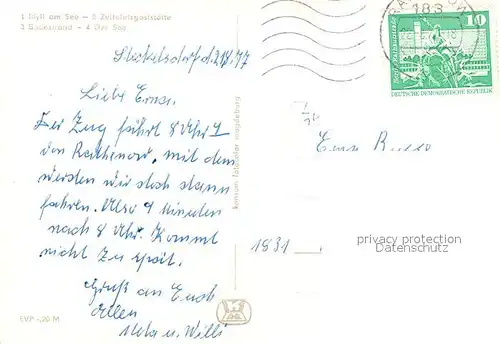 1 Idyll am See - 2 Zeltplatzgaststätte
3 Badestrand - 4 Der See
Stechelsdorf d. 21.8.77
Liebe Erna.
Der Zug fährt 8 Uhr 9
von Rathenow, mit dem
werden wir doch dann
fahren. Also 9 Minuten
nach 8 Uhr. Kommt
nicht zu spät.
Gruß an Euch
Allen
u. Willi
EVP -,20 M
konsum fotocolor magdeburg
183
10
DEUTSCHE DEMOKRATISCHE REPUBLIK
Erna
1831
privacy protection
watermark